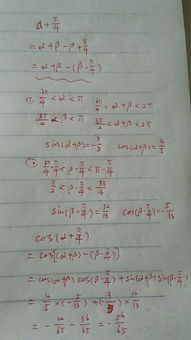 α+π/4
=α+β-β+π/4
=α+β-(β-π/4)
① 3π/4<α<π 6π/4<α+β<2π
3π/4<β<π 3π/2<α+β<2π
sin(α+β)=-3/5 cos(α+β)=4/5
② 3π/4-π/4<β-π/4<π-π/4
π/2<β-π/4<3π/4
sin(β-π/4)=12/13 cos(β-π/4)=-5/13
cos(α+π/4)
=cos[(α+β)-(β-π/4)]
=cos(α+β)cos(β-π/4)+sin(α+β)sin(β-π/4)
=4/5×(-5/13)+(-3/5)×12/13
=-20/65-36/65=-56/65